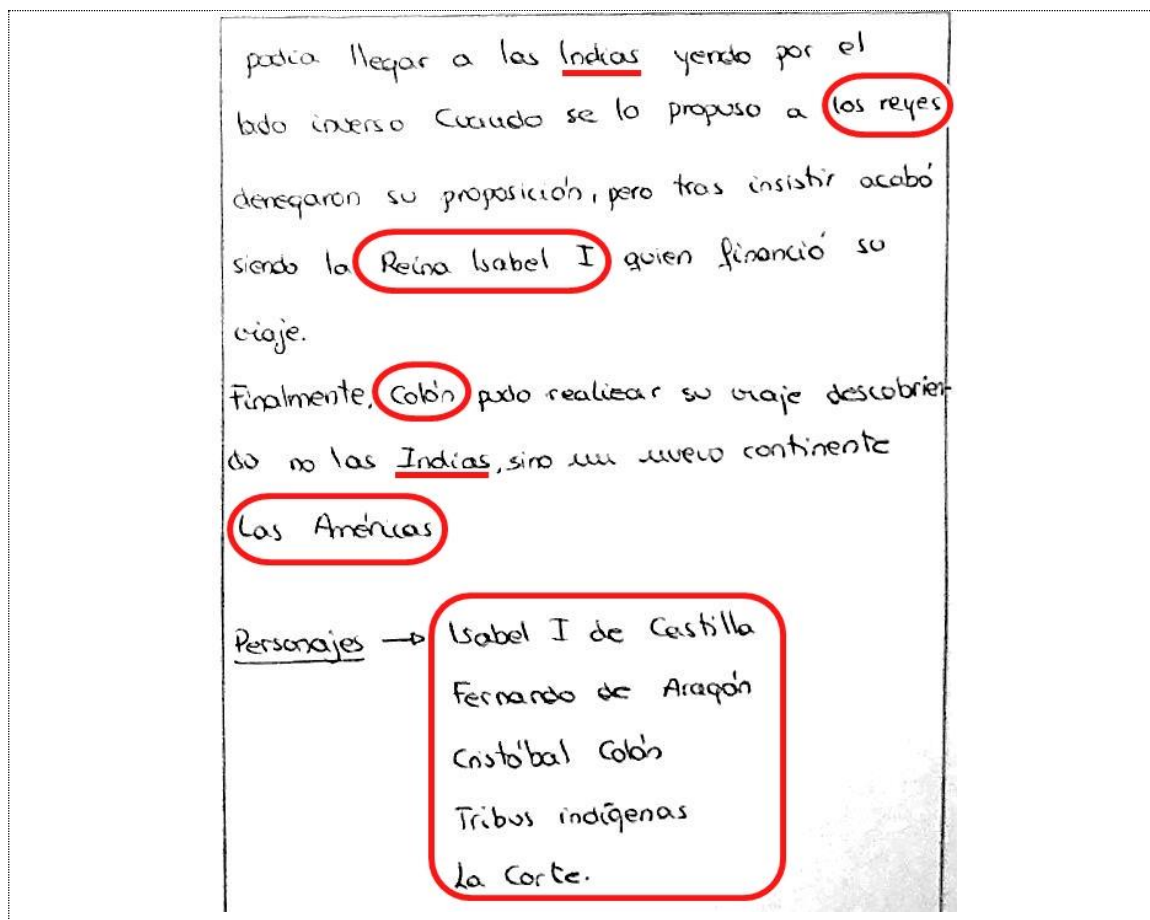 podía llegar a las Indias yendo por el
lado inverso Cuando se lo propuso a los reyes
denegaron su proposición, pero tras insistir acabó
siendo la Reina Isabel I quien financió su
viaje.
Finalmente, Colón pudo realizar su viaje descobrien-
do no las Indias, sino un nuevo continente
Las Américas
Personajes → Isabel I de Castilla
Fernando de Aragón
Cristóbal Colón
Tribus indígenas
La Corte.